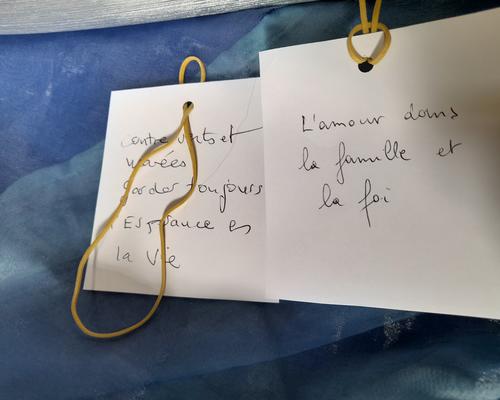 contre vents et
marées
Garder toujours
l'Espérance en
la Vie
L'amour dans
la famille et
la foi